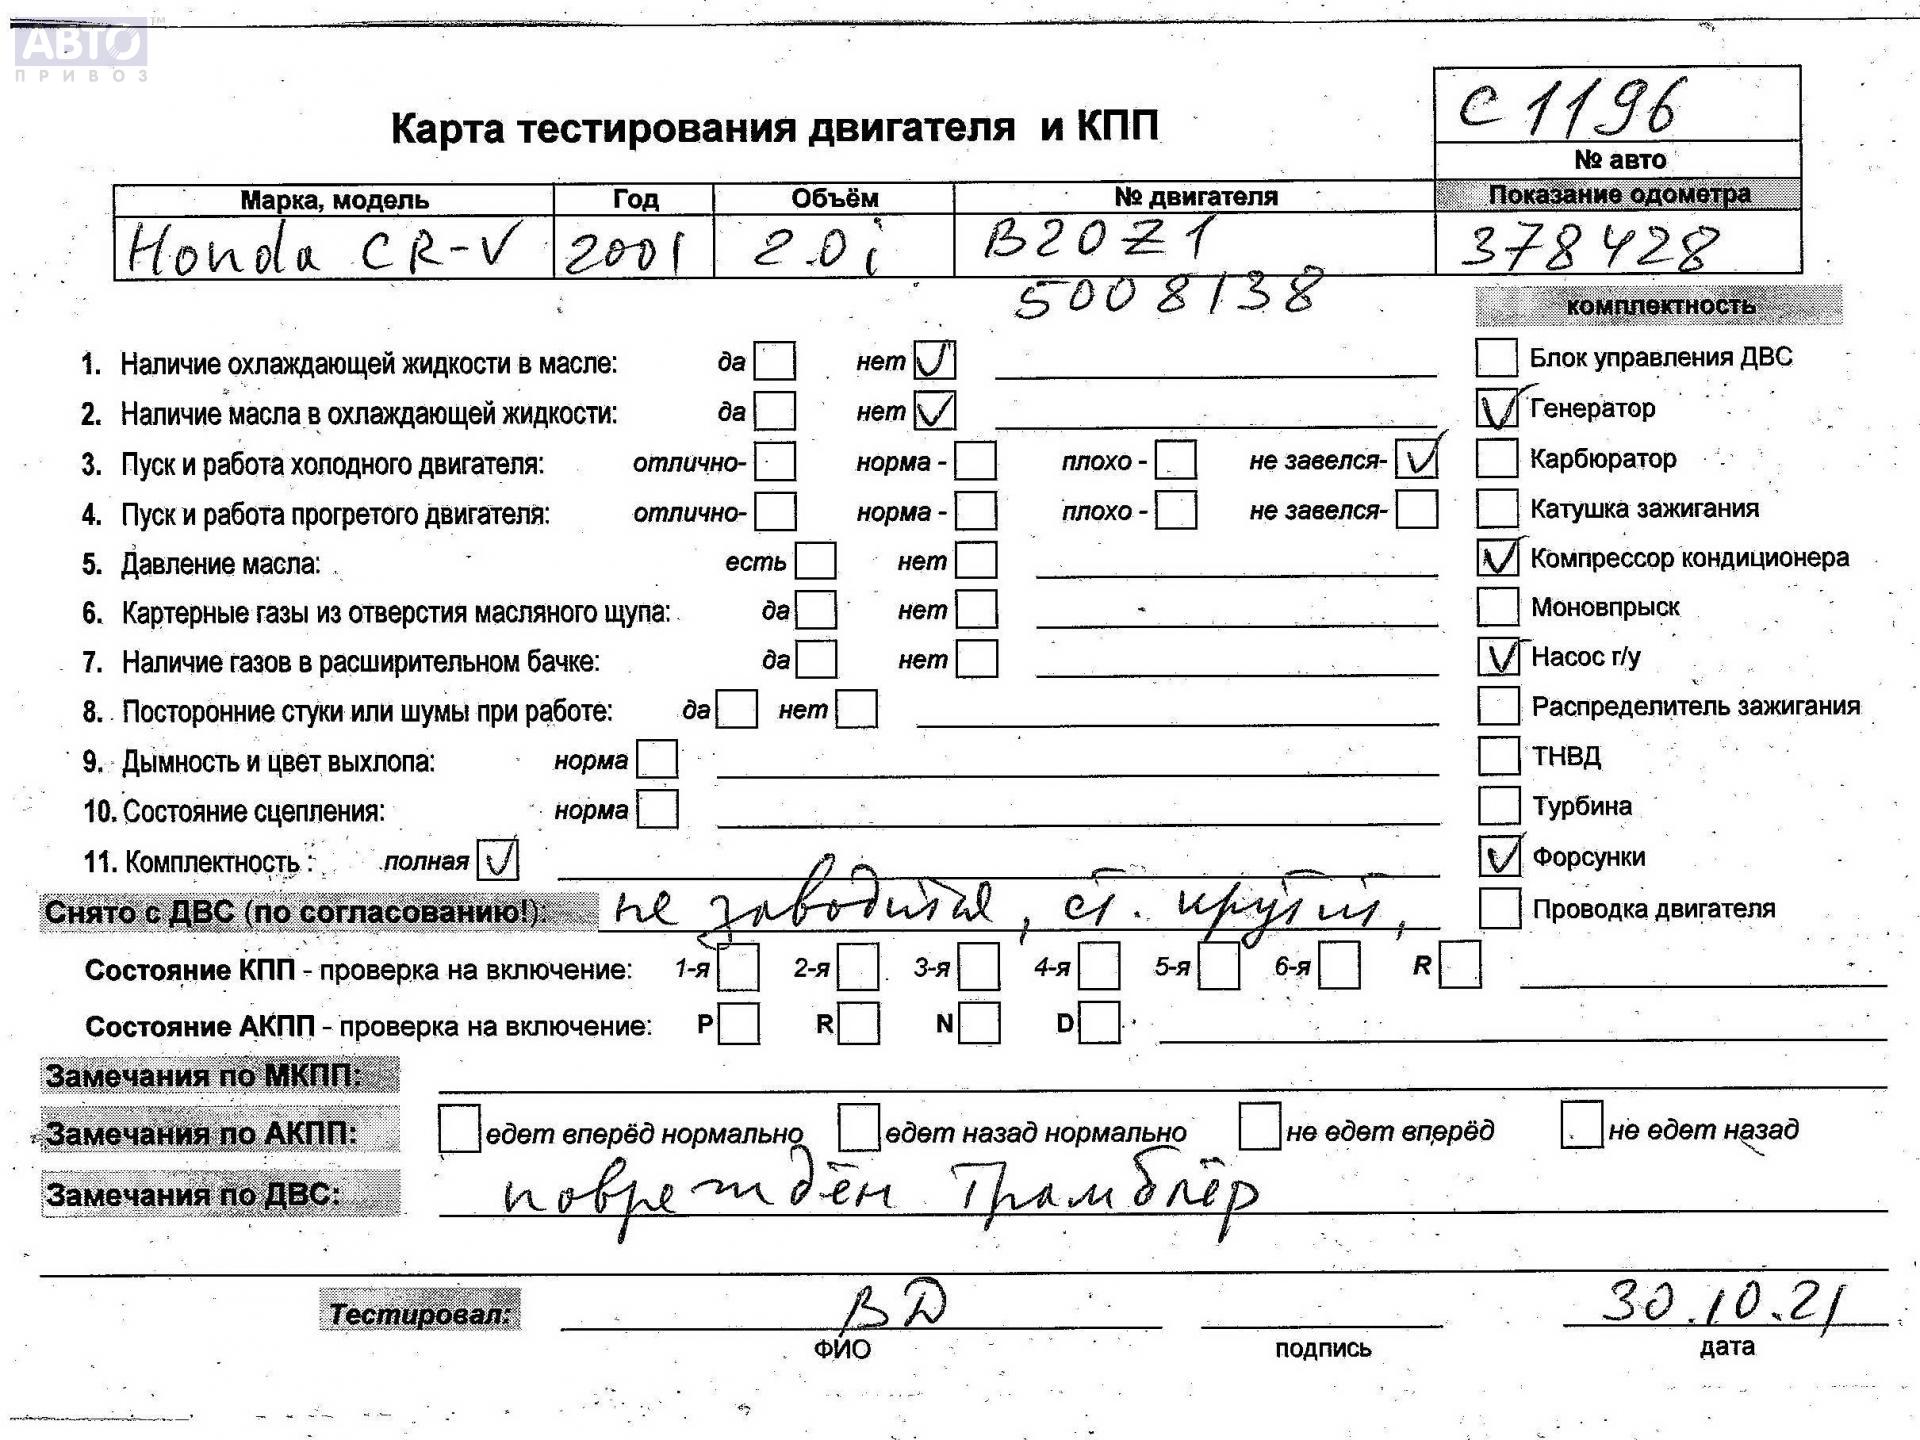 АВТО
ПРИВОЗ
С1196
Карта тестирования двигателя и КПП
№ авто
Марка, модель Год Объём № двигателя Показание одометра
Honda CR-V 2001 2.0i B20Z1 378428
5008138
комплектность
1. Наличие охлаждающей жидкости в масле: да нет ✓ Блок управления ДВС
2. Наличие масла в охлаждающей жидкости: да нет ✓ ✓ Генератор
3. Пуск и работа холодного двигателя: отлично- норма - плохо - не завелся- ✓ Карбюратор
4. Пуск и работа прогретого двигателя: отлично- норма - плохо - не завелся- Катушка зажигания
5. Давление масла: есть нет ✓ Компрессор кондиционера
6. Картерные газы из отверстия масляного щупа: да нет Моновпрыск
7. Наличие газов в расширительном бачке: да нет ✓ Насос г/у
8. Посторонние стуки или шумы при работе: да нет Распределитель зажигания
9. Дымность и цвет выхлопа: норма ТНВД
10. Состояние сцепления: норма Турбина
11. Комплектность : полная ✓ ✓ Форсунки
Снято с ДВС (по согласованию!): не заводится, ст. крутит, Проводка двигателя
Состояние КПП - проверка на включение: 1-я 2-я 3-я 4-я 5-я 6-я R
Состояние АКПП - проверка на включение: P R N D
Замечания по МКПП:
Замечания по АКПП: едет вперёд нормально едет назад нормально не едет вперёд не едет назад
Замечания по ДВС: повреждён трамблёр
Тестировал: ВД 30.10.21
ФИО подпись дата